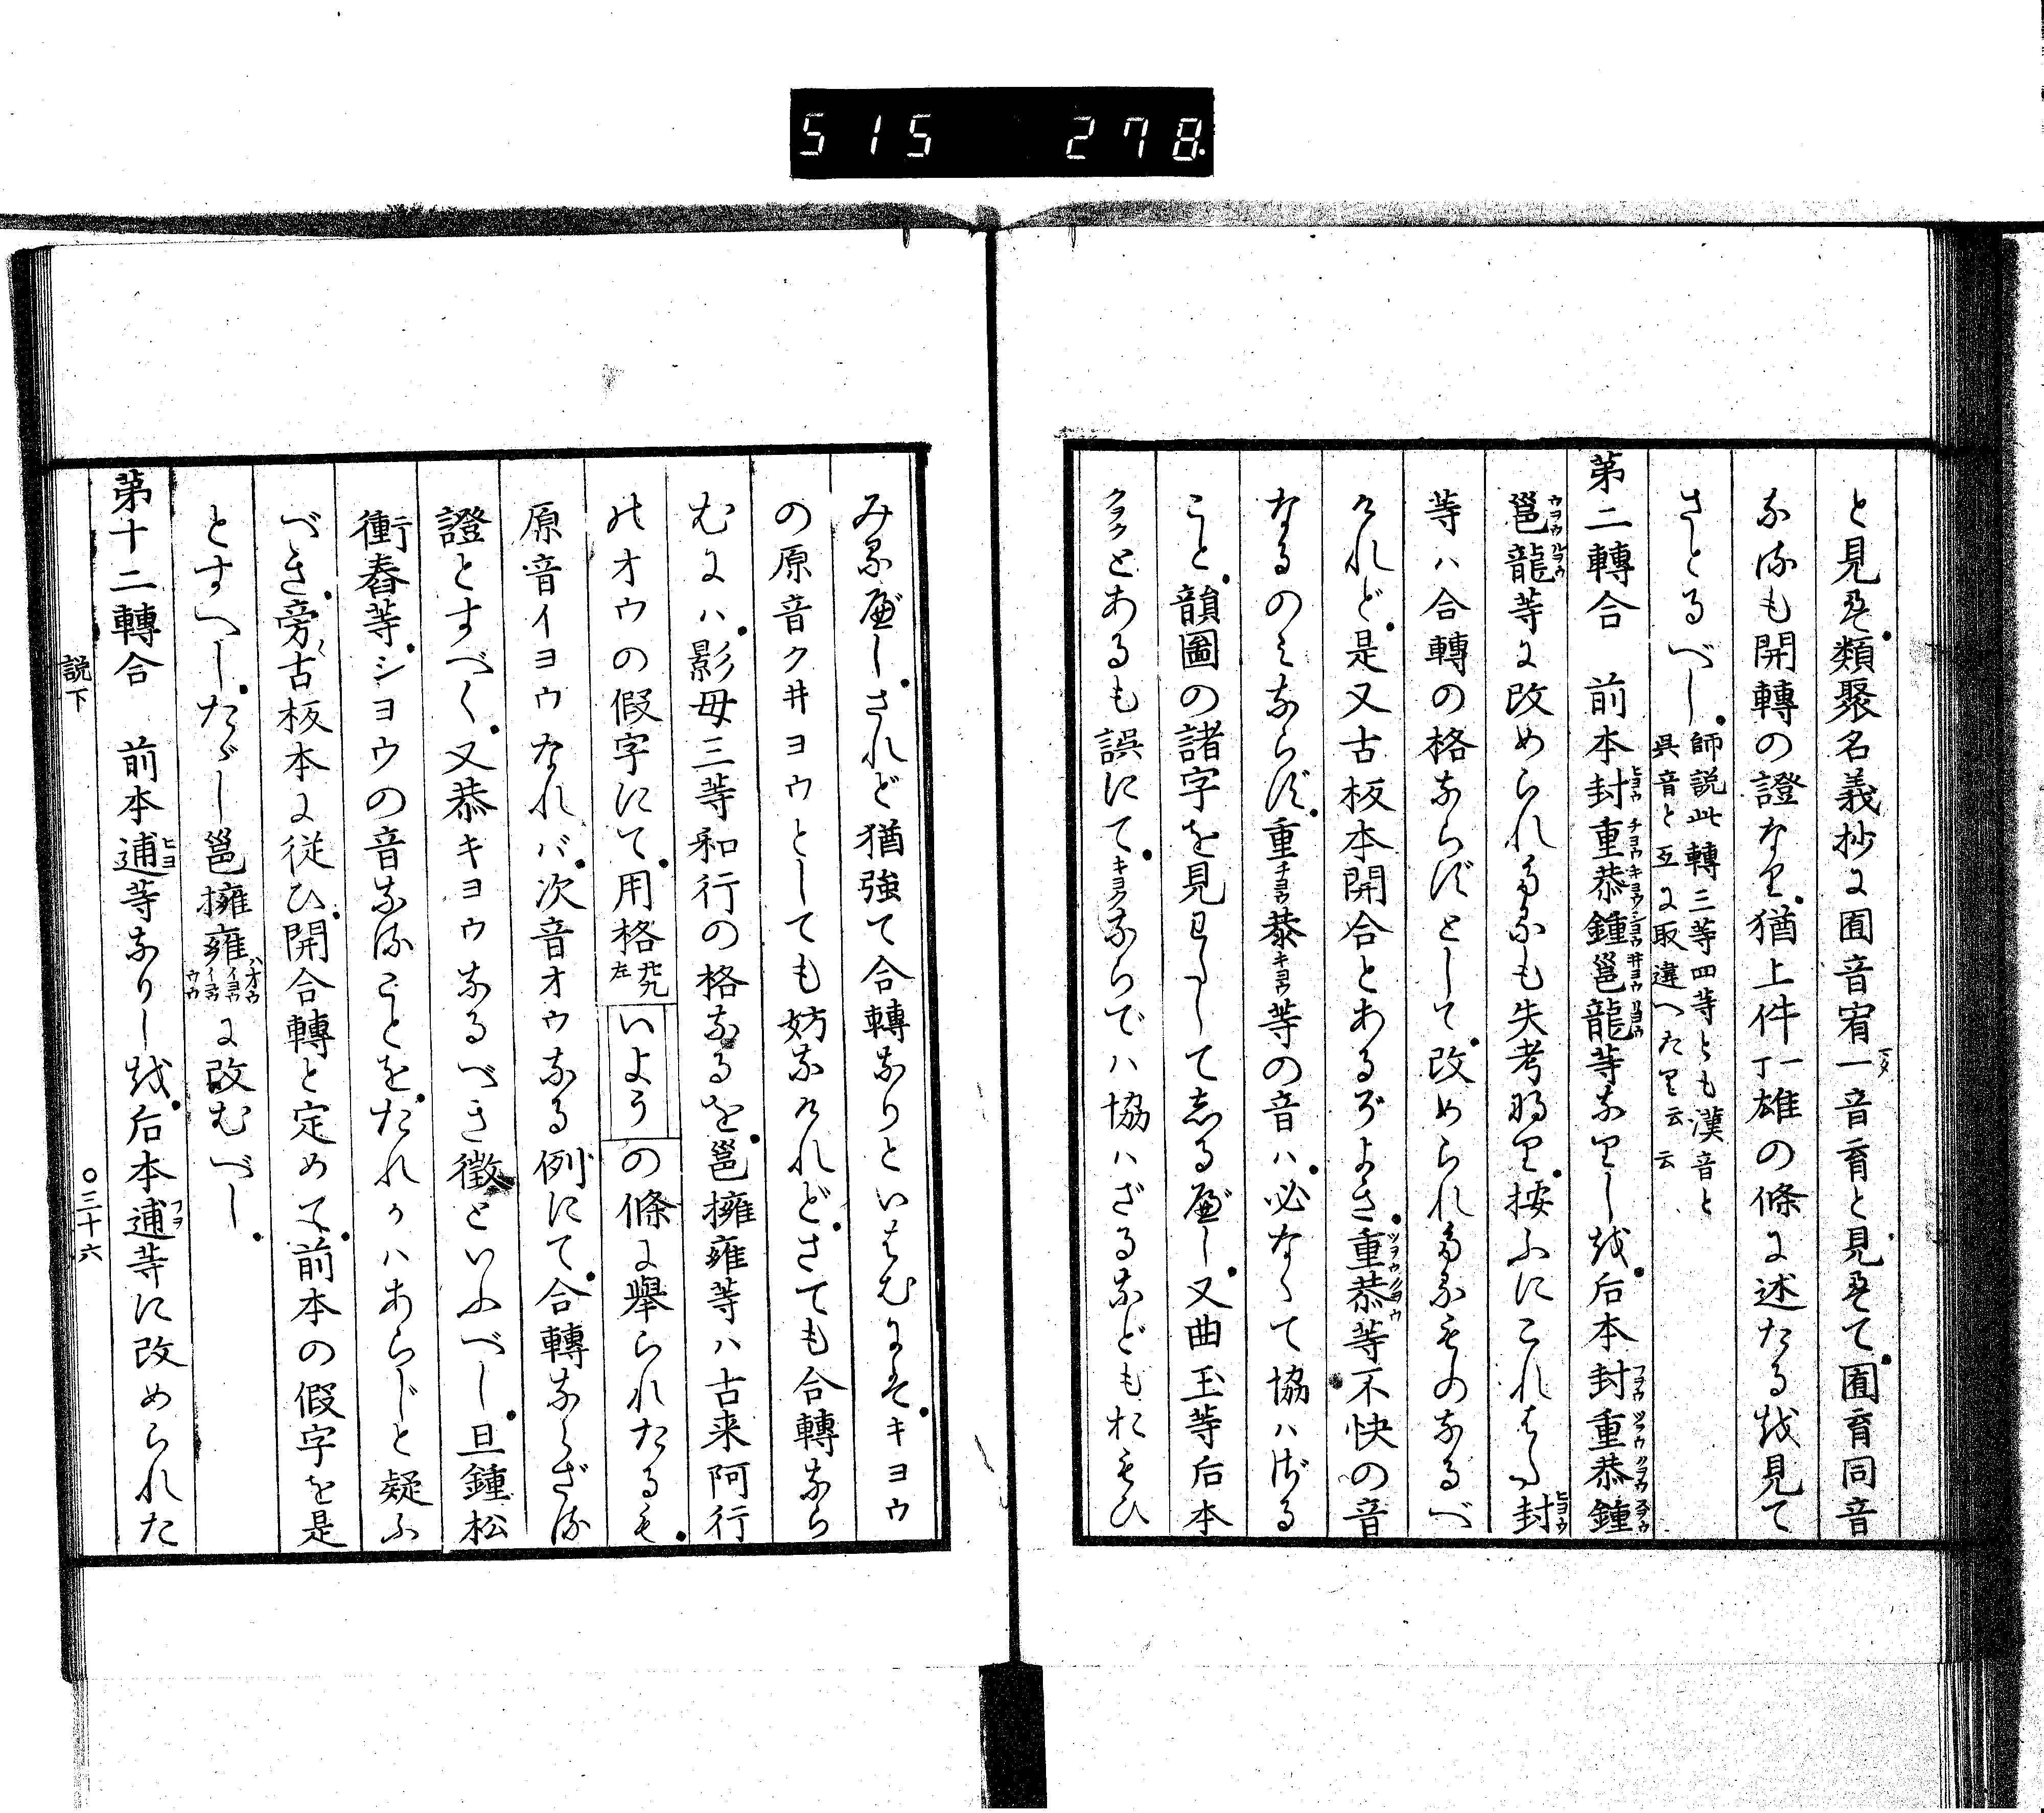 515 278
と見え類聚名義抄に囿音宥一音育と見えて囿育同音
なるも開轉の證なり猶上件一丁雄の條に述たる越見て
さとるべし師説此轉三等四等とも漢音と
呉音と互に取違へたり云云
第二轉合 前本封ヒヨウ重チヨウ恭キヨウ鍾シヨウ邕ヰヨウ龍リヨウ等なりし越后本封フヨウ重ツヲウ恭クヲウ鍾スヲウ
邕ウヲウ龍ルヲウ等に改められたるも失考なり按ふにこれはた封ヒヨウ
等ハ合轉の格ならずとして改められたるものなるべ
けれど是又古板本開合とあるぞよき重ツヲウ恭クヲウ等不快の音
なるのみならず重チヨウ恭キヨウ等の音ハ必なくて協ハざる
こと韻圖の諸字を見わたして志る遍し又曲玉等后本
クヲクとあるも誤にてキヨクならでハ協ハざるなどもおもひ
みる遍しされど猶強て合轉なりといはむにそキヨウ
の原音クヰヨウとしても妨なけれどさても合轉なら
むにハ影母三等和行の格なるを邕擁雍等ハ古来阿行
のオウの假字にて用格廿九左いようの條に舉られたるも
原音イヨウなれバ次音オウなる例にて合轉ならざる
證とすべく又恭キヨウなるべき徴といふべし且鍾松
衝舂等シヨウの音なることをたれかハあらじと疑ふ
べき旁〻古板本に従ひ開合轉と定めて前本の假字を是
とすへしたゞし邕擁雍ハオウイヨウイウウウに改むべし
第十二轉合 前本逋ヒヨ等なりし越后本逋フヲ等に改められた
説下 〇三十六